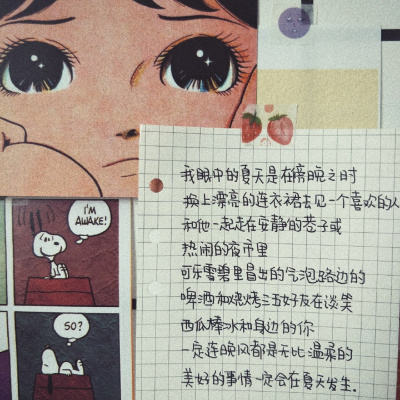 我眼中的夏天是在傍晚之时
换上漂亮的连衣裙去见一个喜欢的人
和他一起走在安静的巷子或
热闹的夜市里
可乐雪碧里冒出的气泡路边的
啤酒和烧烤三五好友在谈笑
西瓜棒冰和身边的你
一定连晚风都是无比温柔的
美好的事情一定会在夏天发生.
I'M
AWAKE!
SO?